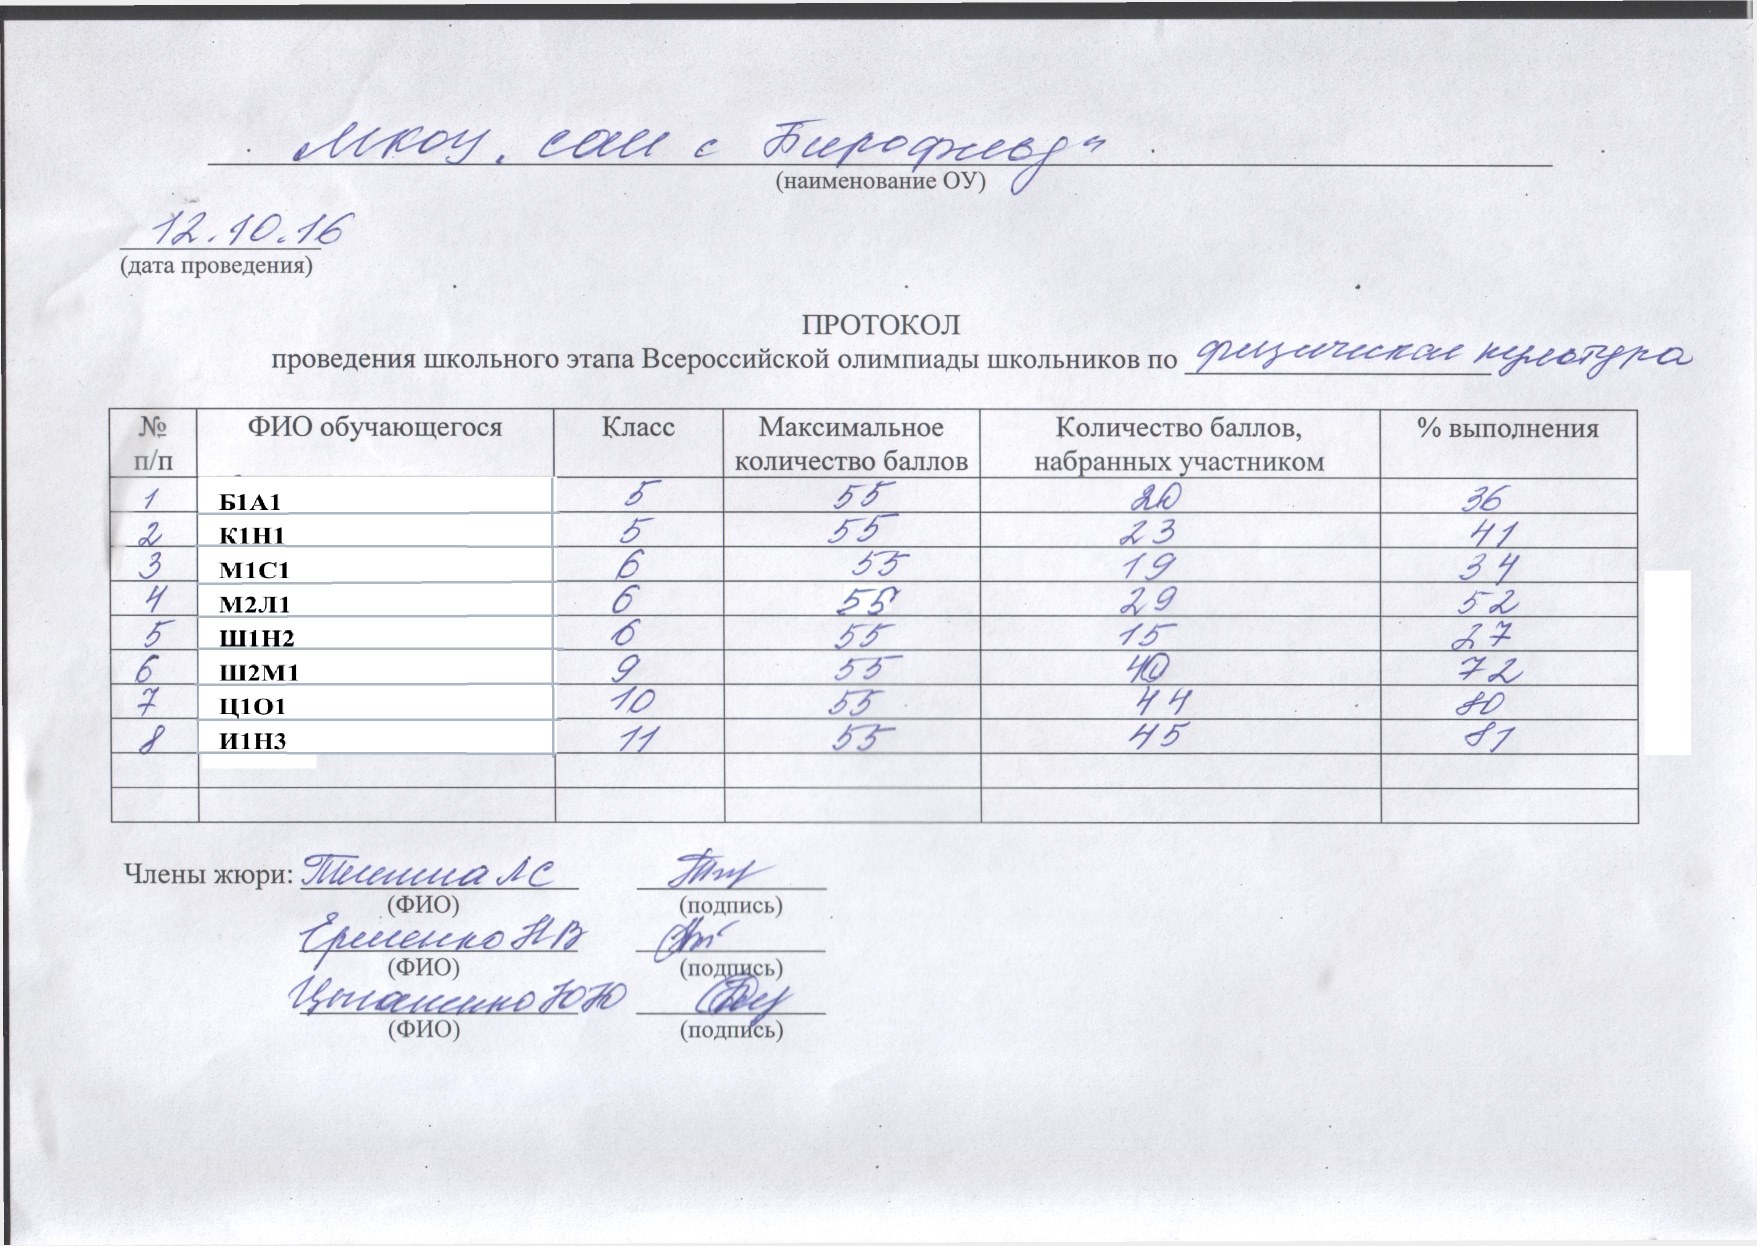 МКОУ. сош с Бирофельд"
(наименование ОУ)
12.10.16
(дата проведения)
ПРОТОКОЛ
проведения школьного этапа Всероссийской олимпиады школьников по физическая культура
№ п/п ФИО обучающегося Класс Максимальное количество баллов Количество баллов, набранных участником % выполнения
1 Б1А1 5 55 20 36
2 К1Н1 5 55 23 41
3 М1С1 6 55 19 34
4 М2Л1 6 55 29 52
5 Ш1Н2 6 55 15 27
6 Ш2М1 9 55 40 72
7 Ц1О1 10 55 44 80
8 И1Н3 11 55 45 81
Члены жюри: ЛС
(ФИО) (подпись)
Ерменко НВ
(ФИО) (подпись)
Цыганенко ЮЮ
(ФИО) (подпись)